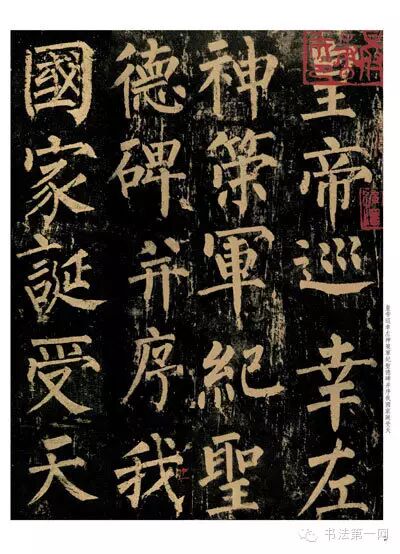 皇帝巡幸左
神策軍紀聖
德碑并序我
國家誕受天
皇帝巡幸左神策軍紀聖德碑并序我國家誕受天
书法第一网